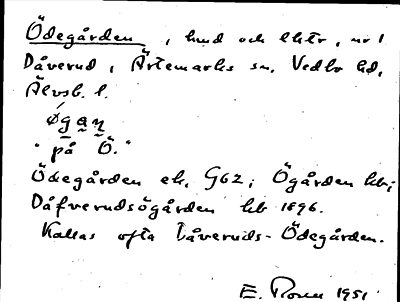 Ödegården, hmd och lhtr, nr 1
Dåverud i Ärtemarks sn. Vedbo hd,
Älvsb. l.
"på Ö."
Ödegården ek. G62; Ögården kb;
Dåfverudsögården kb 1896.
Kallas ofta Dåveruds-Ödegården.
E. 1951